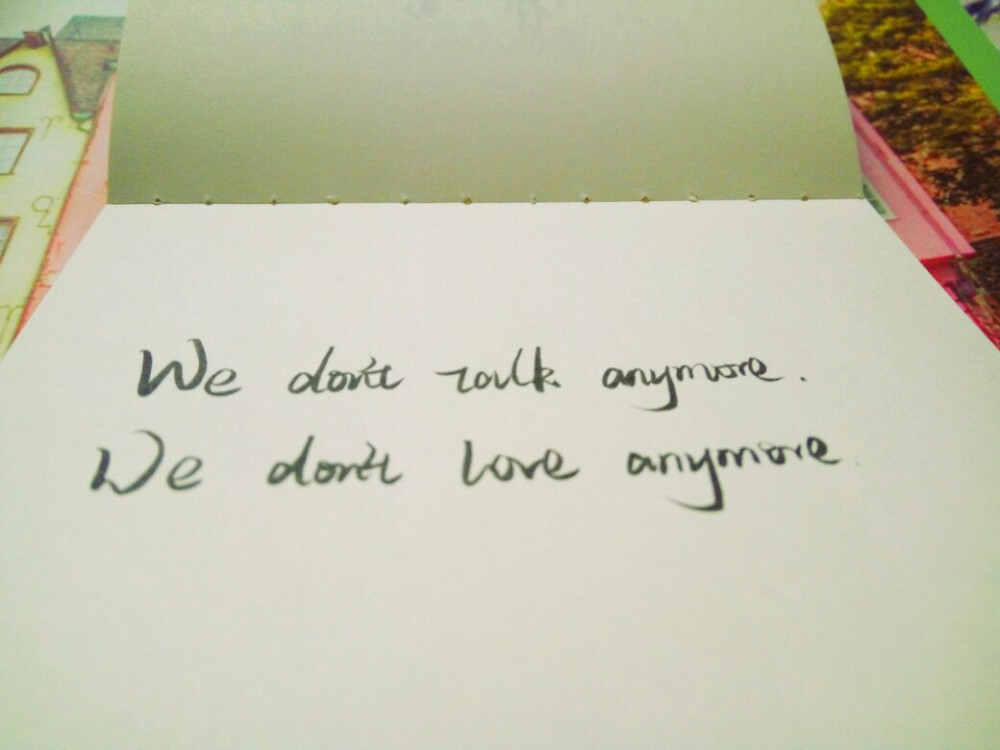 We don't talk anymore.
We don't love anymore.